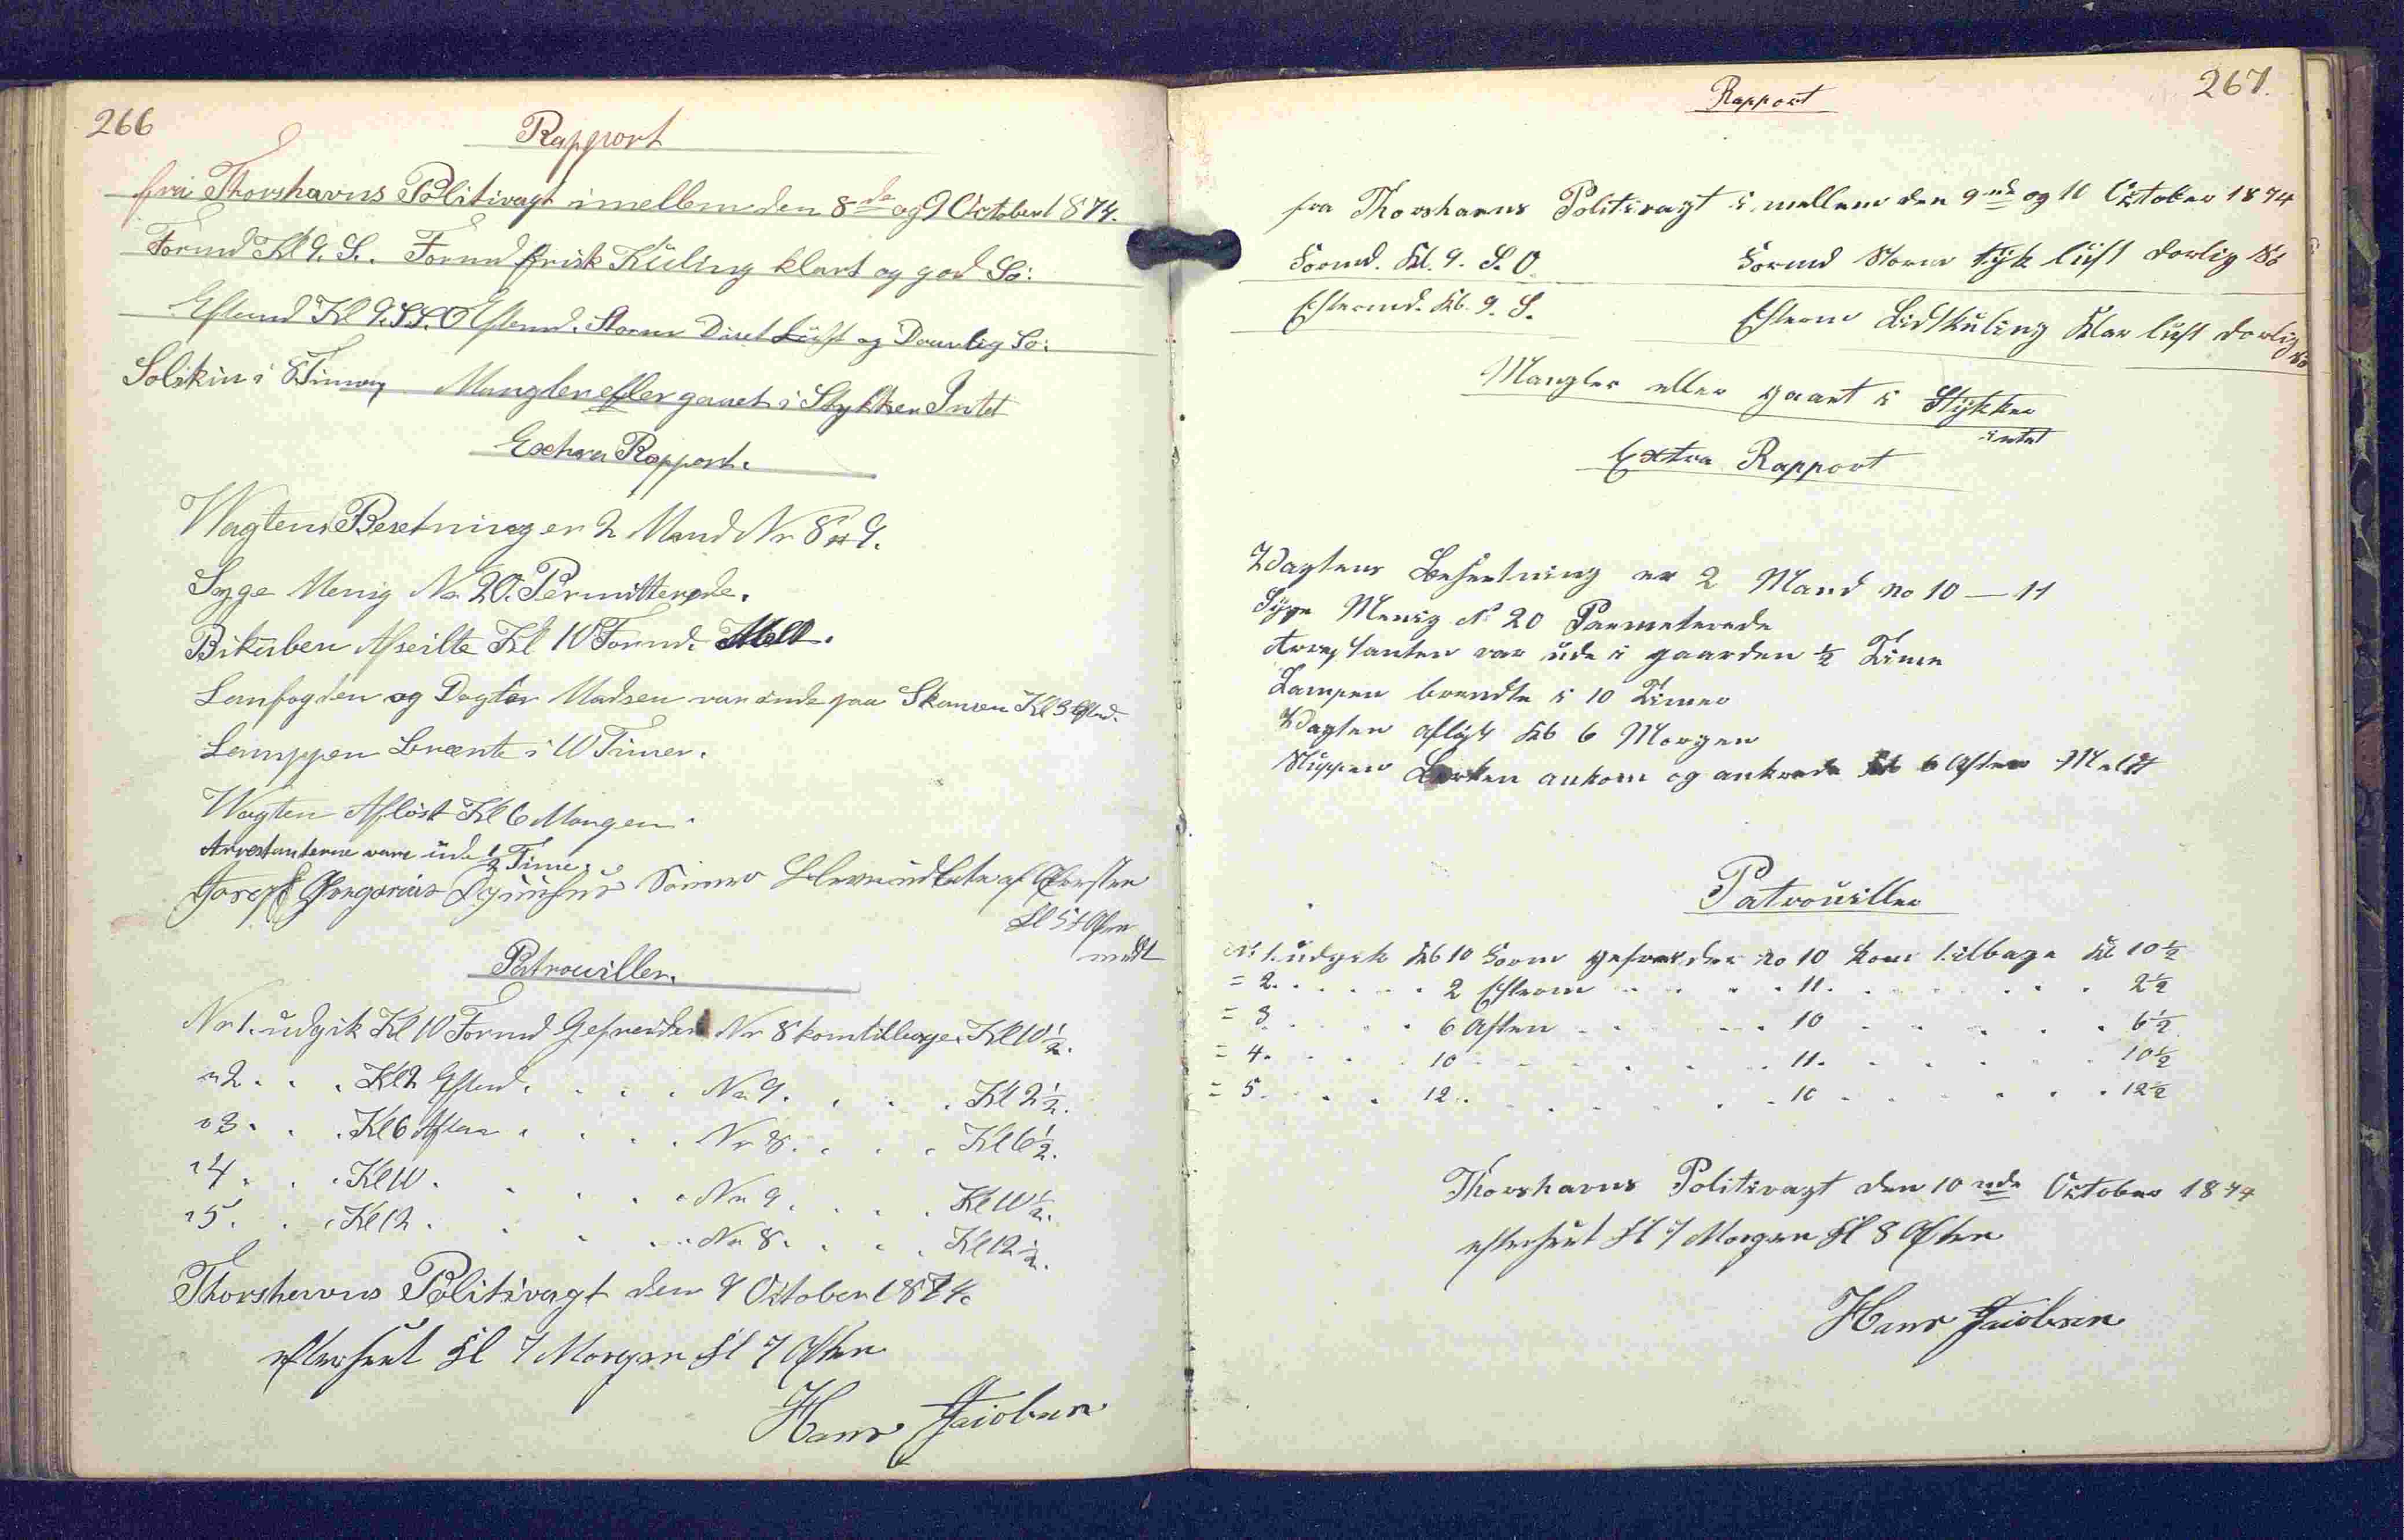 266
Rapport
fra Thorshavns Politivagt imellem den 8de og 9 October 1874.
Formd Kl 9. S. Formd frisk Kuling klart og god So:
Eftemd Kl 9. S.S.O Eftemd. Storm Diset Luft og Daarlig So:
Solskin i 8 Timer Mangler eller gaaet i Stykker Intet
Extra Rapport.
Wagtens Besetning er 2 Mand Nr 8 & 9.
Syge Menig No 20. Permitterede.
Bikuben Afseilte Kl 10 Formd. Meldt.
Lanfogden og Dogter Madsen var inde paa Skansen Kl 3 Eftmd.
Lamppen Brænte i 10 Timer.
Wagten Afløst Kl 6 Morgen.
Arrestanterne vare ude ½ Time.
Josep Gregorius
Kl 5 Aften
meldt
Patrouiller.
Nr 1. udgik Kl 10 Formd Gefreider Nr 8 kom tilbage Kl 10½.
" 2 . . . Kl 2 Eftmd. . . . . No 9. . . . . Kl 2½.
" 3 . . . Kl 6 Aften . . . . Nr 8. . . . . Kl 6½.
" 4 . . . Kl 10 . . . . . No 9 . . . . Kl 10½.
" 5 . . . Kl 12 . . . . . No 8. . . . Kl 12½.
Thorshavns Politivagt den 9 October 1874.
efterseet Kl 7 Morgen Kl 7 Aften
Hans Jacobsen
267.
Rapport
fra Thorshavns Politivagt i mellem den 9nde og 10 October 1874
Formd. Kl. 9. S.O. Formd Storm tyk luft dorlig So
Eftermd. Kl. 9. S. Efterm Bidskuling Klar luft dorlig So
Mangler eller gaaet i Stykker
intet
Extra Rapport
Wagtens Besetning er 2 Mand No 10 — 11
Syge Menig No 20 Permeterede
Arrestanten var ude i gaarden ½ Time
Lampen brendte i 10 Timer
Wagten afløst Kl 6 Morgen
Sluppen Lerken ankom og ankrede Kl 6 Aften Meldt
Patrouiller
No 1. udgik Kl 10 Form gefreider No 10 kom tilbage Kl 10½
= 2. . . . . . 2 Efterm . . . . 11. . . . . . . 2½
= 3. . . . . 6 Aften . . . . 10 . . . . . . 6½
= 4. . . . . 10 . . . . . . 11. . . . . . . 10½
= 5. . . . 12 . . . . . . 10 . . . . . . 12½
Thorshavns Politivagt den 10nde October 1874
efterseet Kl 7 Morgen Kl 8 Aften
Hans Jacobsen